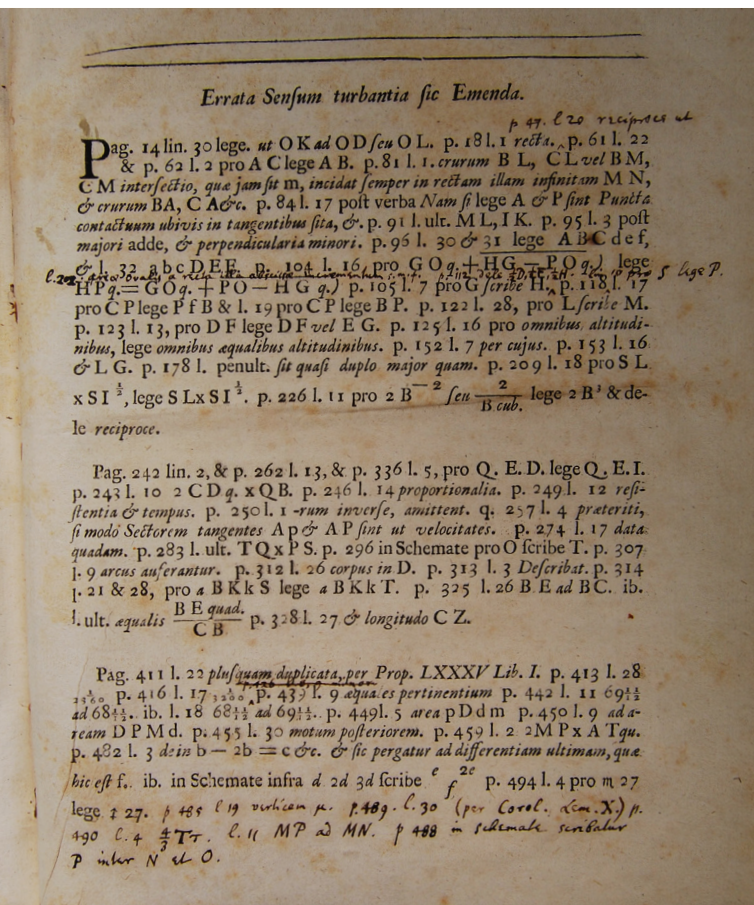 Errata Senſum turbantia ſic Emenda.
p 47. l 20 reciproce ut
Pag. 14 lin. 30 lege. ut O K ad O D ſeu O L. p. 18 l. 1 recta. ‸ p. 61 l. 22
& p. 62 l. 2 pro A C lege A B. p. 81 l. 1. crurum B L, C L vel B M,
C M interſectio, quæ jam ſit m, incidat ſemper in rectam illam infinitam M N,
& crurum BA, C A &c. p. 84 l. 17 poſt verba Nam ſi lege A & P ſint Puncta
contactuum ubivis in tangentibus ſita, &. p. 91 l. ult. M L, I K. p. 95 l. 3 poſt
majori adde, & perpendicularia minori. p. 96 l. 30 & 31 lege A B C d e f,
& l. 32 a b c D E F. p. 104 l. 16, pro G O q. + H G — P O q.) lege
5 lege P.
H P q. = G O q. + P O — H G q.) p. 105 l. 7 pro G ſcribe H. ‸ p. 118 l. 17
pro C P lege P f B & l. 19 pro C P lege B P. p. 122 l. 28, pro L ſcribe M.
p. 123 l. 13, pro D F lege D F vel E G. p. 125 l. 16 pro omnibus altitudi-
nibus, lege omnibus æqualibus altitudinibus. p. 152 l. 7 per cujus. p. 153 l. 16
& L G. p. 178 l. penult. ſit quaſi duplo major quam. p. 209 l. 18 pro S L
x S I ½, lege S L x S I ½. p. 226 l. 11 pro 2 B⁻² ſeu 2/B cub. lege 2 B³ & de-
le reciproce.
Pag. 242 lin. 2, & p. 262 l. 13, & p. 336 l. 5, pro Q. E. D. lege Q. E. I.
p. 243 l. 10 2 C D q. x Q B. p. 246 l. 14 proportionalia. p. 249 l. 12 reſi-
ſtentia & tempus. p. 250 l. 1 -rum inverſe, amittent. q. 257 l. 4 præteriti,
ſi modò Sectorem tangentes A p & A P ſint ut velocitates. p. 274 l. 17 data
quadam. p. 283 l. ult. T Q x P S. p. 296 in Schemate pro O ſcribe T. p. 307
l. 9 arcus auferantur. p. 312 l. 26 corpus in D. p. 313 l. 3 Deſcribat. p. 314
l. 21 & 28, pro a B K k S lege a B K k T. p. 325 l. 26 B E ad B C. ib.
l. ult. æqualis B E quad./C B p. 328 l. 27 & longitudo C Z.
Pag. 411 l. 22 pluſquam duplicata, per Prop. LXXXV Lib. I. p. 413 l. 28
p. 416 l. 17 ‸ p. 439 l. 9 æquales pertinentium p. 442 l. 11 69½½
ad 68½½. ib. l. 18 68½½ ad 69½½. p. 449 l. 5 area p D d m p. 450 l. 9 ad a-
ream D P M d. p. 455 l. 30 motum poſteriorem. p. 459 l. 2 2 M P x A T qu.
p. 482 l. 3 dein b — 2b = c &c. & ſic pergatur ad differentiam ultimam, quæ
hic eſt f. ib. in Schemate infra d 2d 3d ſcribe e f 2e p. 494 l. 4 pro m 27
lege ♀ 27. p 485 l 19 verticem μ. p. 489. l. 30 (per Corol. Lem. X.) p.
490 l. 4 l. 11 MP ad MN. p 488 in schemate scribatur
P inter N et O.